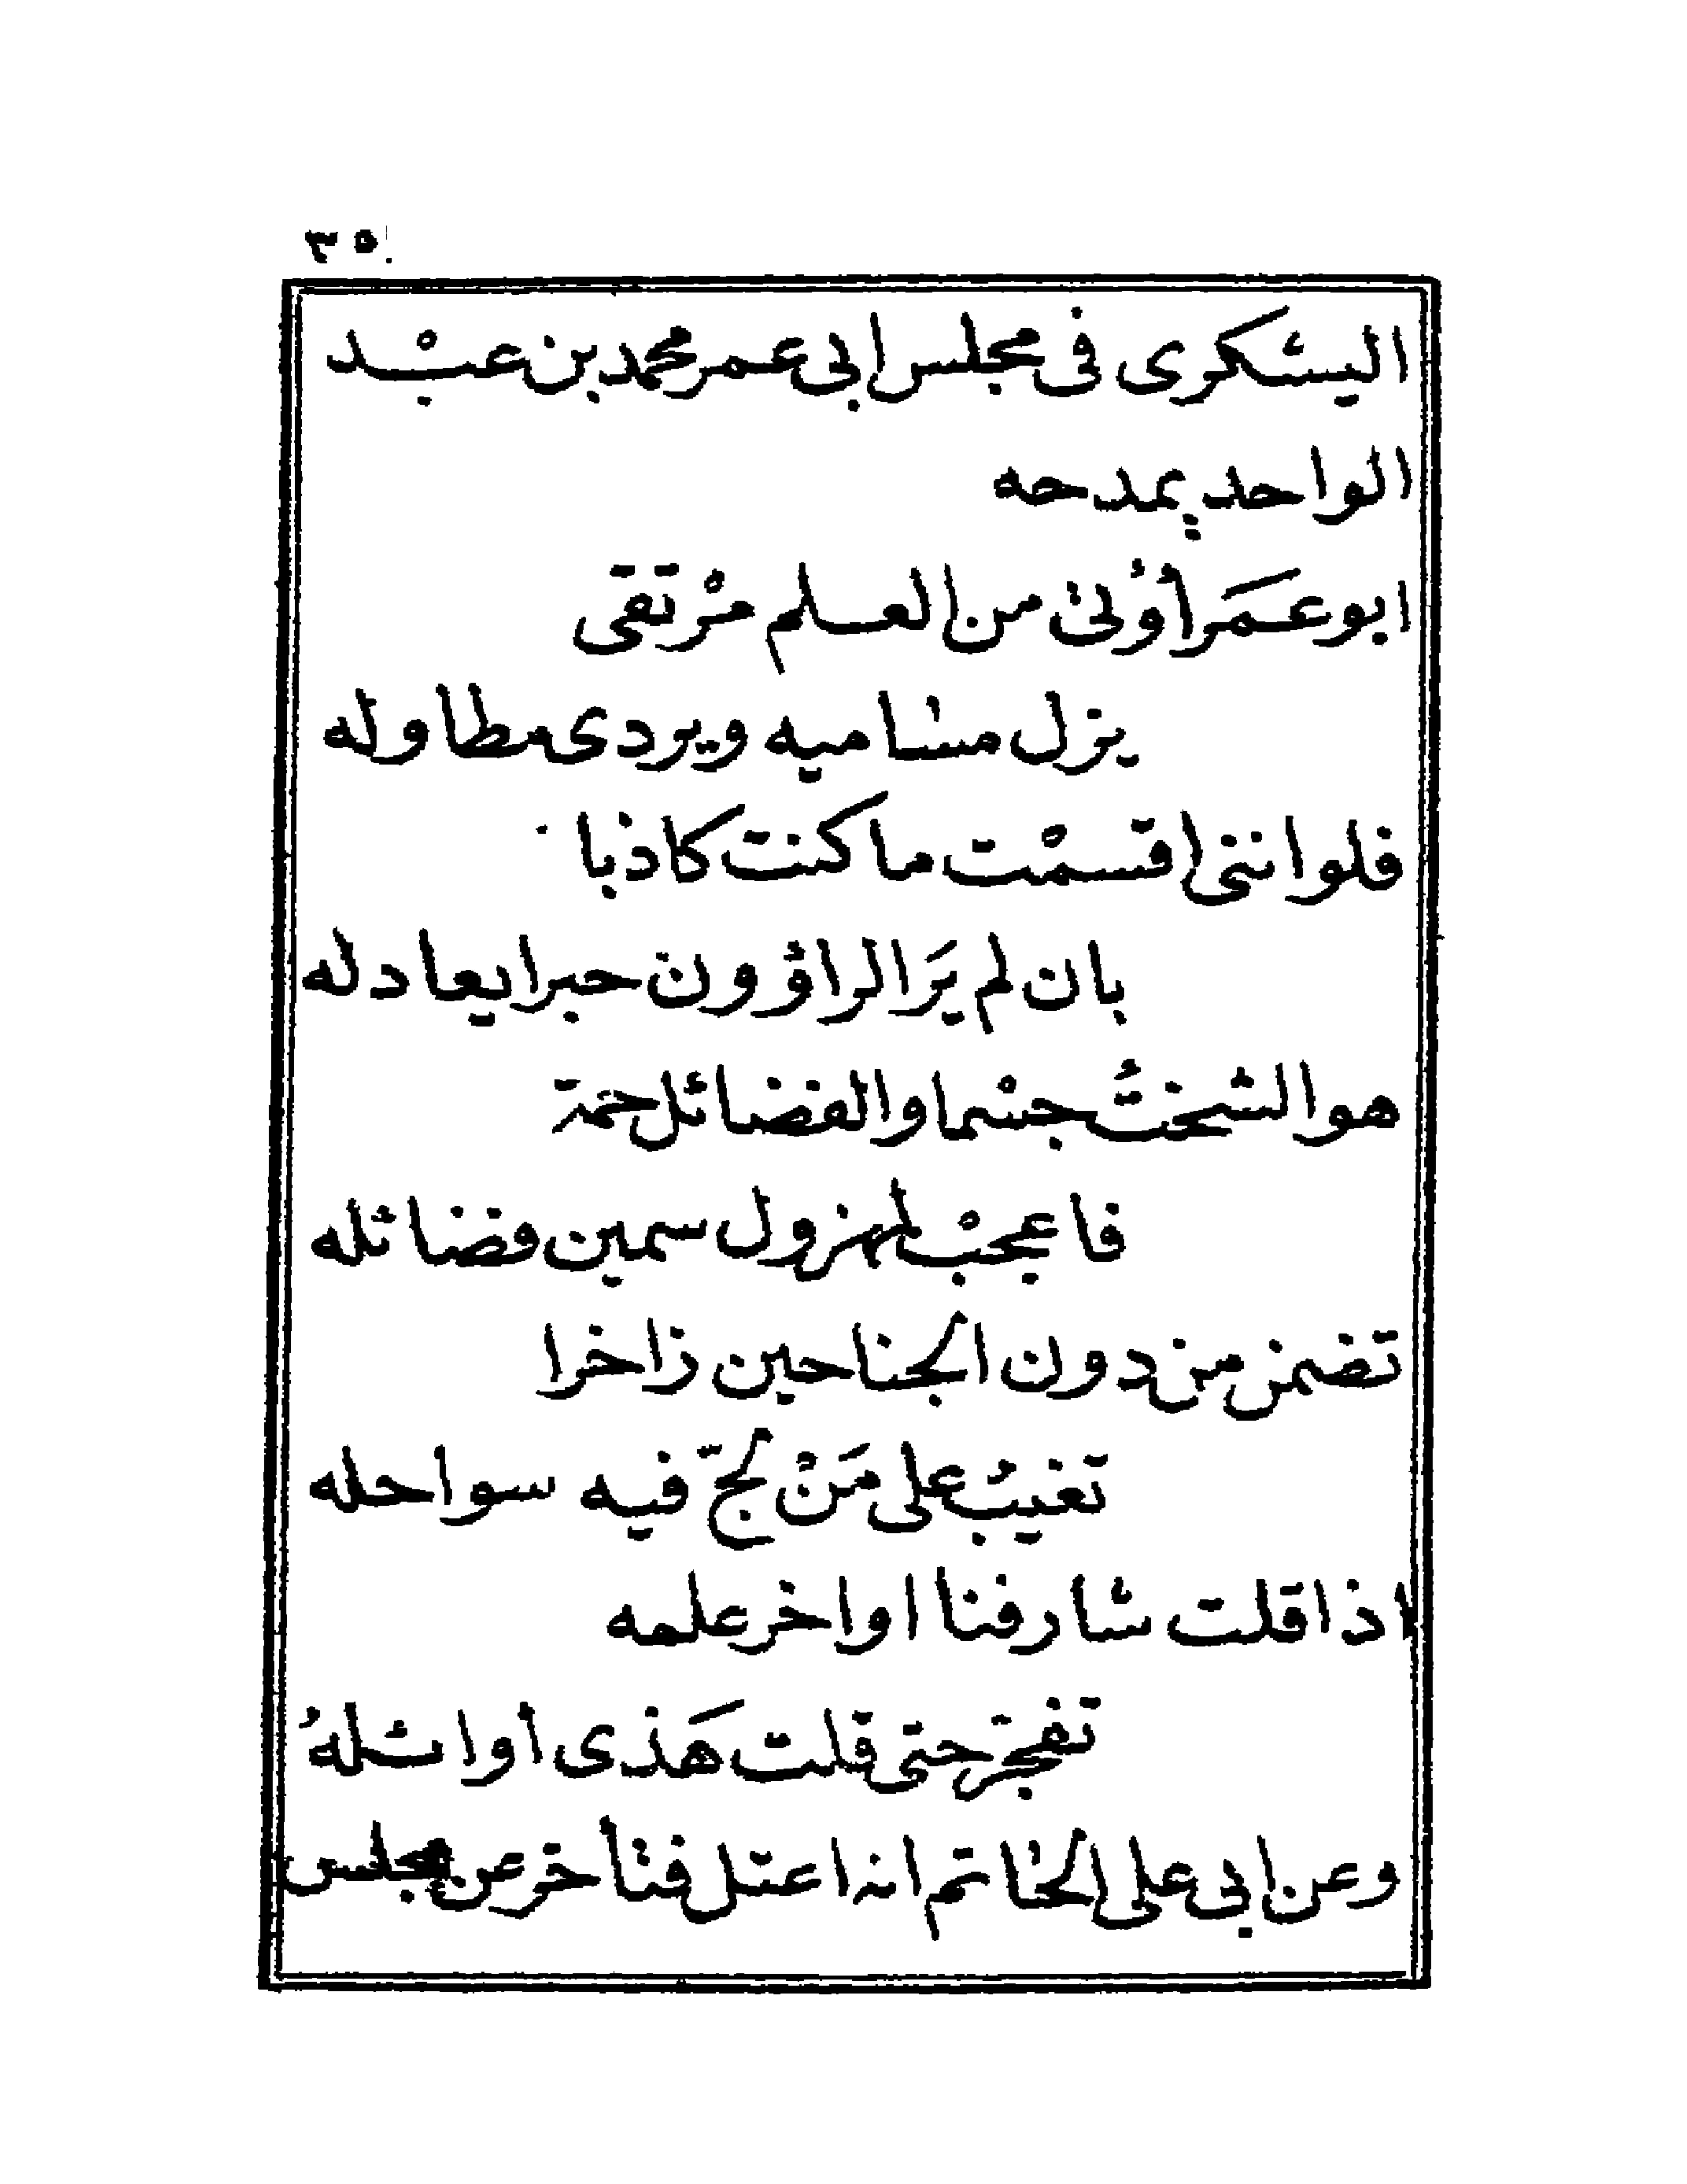 ٣٥
اليشكرى فى مجلس ابى عمر محمد بن عبْد
الواحد يمدحه
ابو عمَر أوْلىٰ من العلم مرْتقى
يزل مسامیه ويردى مطاوله
فلو اننى اقسمْت ما كنت كاذبا
بان لم يَرَ الراؤون حبرا يعادله
هو الشختُ جسْما والفضائل خمة
فاعجبْ لمهزول سمين فضائله
تضمن من دون الجناحين زاخرا
تغيبُ على مَنْ لجّ فيه سواحله
اذا قلت شارفنا اواخر علمه
تفجّر حتى قلت هَذى اوائلهُ
وعن ابى على الحاتم انه اعتل فتأخر عن مجلس